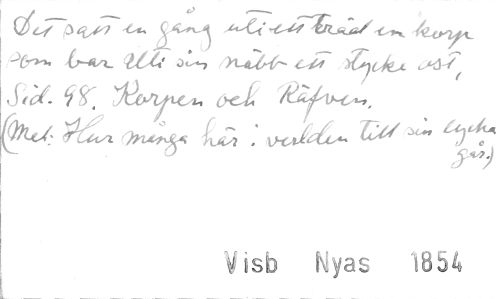 Det satt en gång uti ett träd en korp
som bar uti sin näbb ett stycke ost,
Sid. 98. Korpen och Räfven.
(Mel: Hur många här i verlden till sin lycka
går.)
Visb Nyas 1854